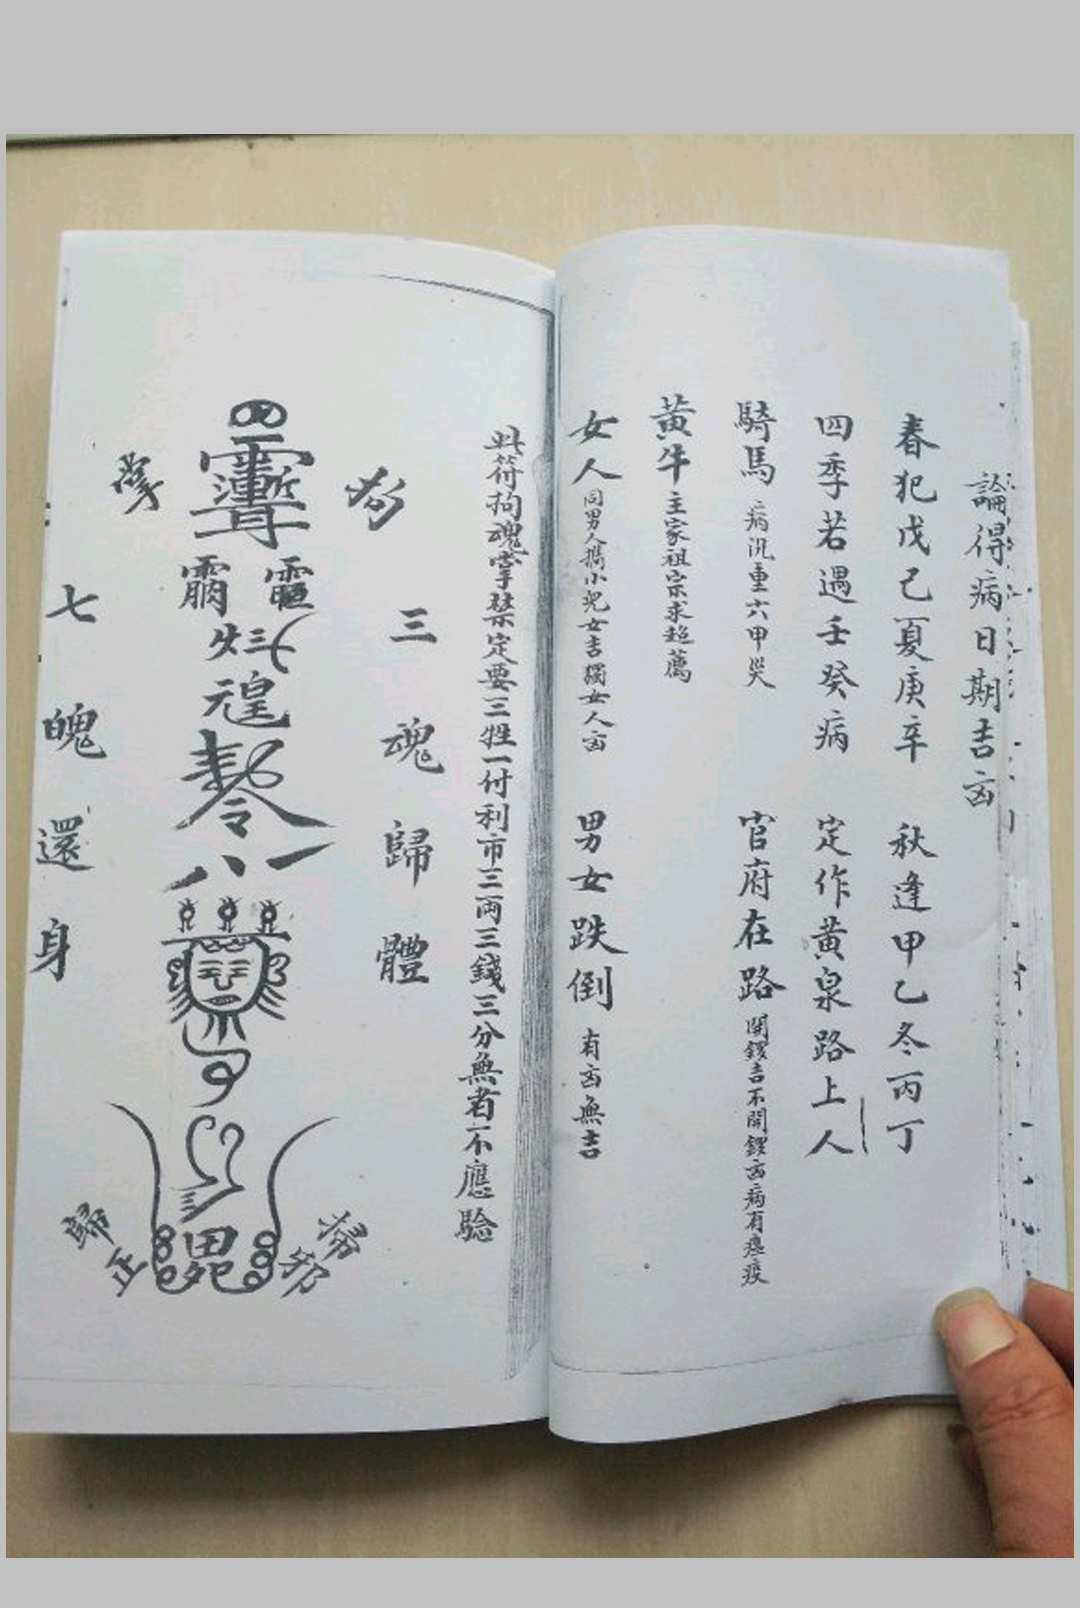 論得病日期吉凶
春犯戊己夏庚辛 秋逢甲乙冬丙丁
四季若遇壬癸病 定作黄泉路上人
騎馬 病沉重六甲災 官府在路 開鑼吉不開鑼凶病有瘟疫
黃牛 主家祖宗求超薦
女人 同男人携小兒女吉獨女人凶 男女跌倒 有凶無吉
此符拘魂掌禁定要三牲一付利市三両三錢三分無者不應驗
三魂歸體
掃邪
七魄還身
歸正